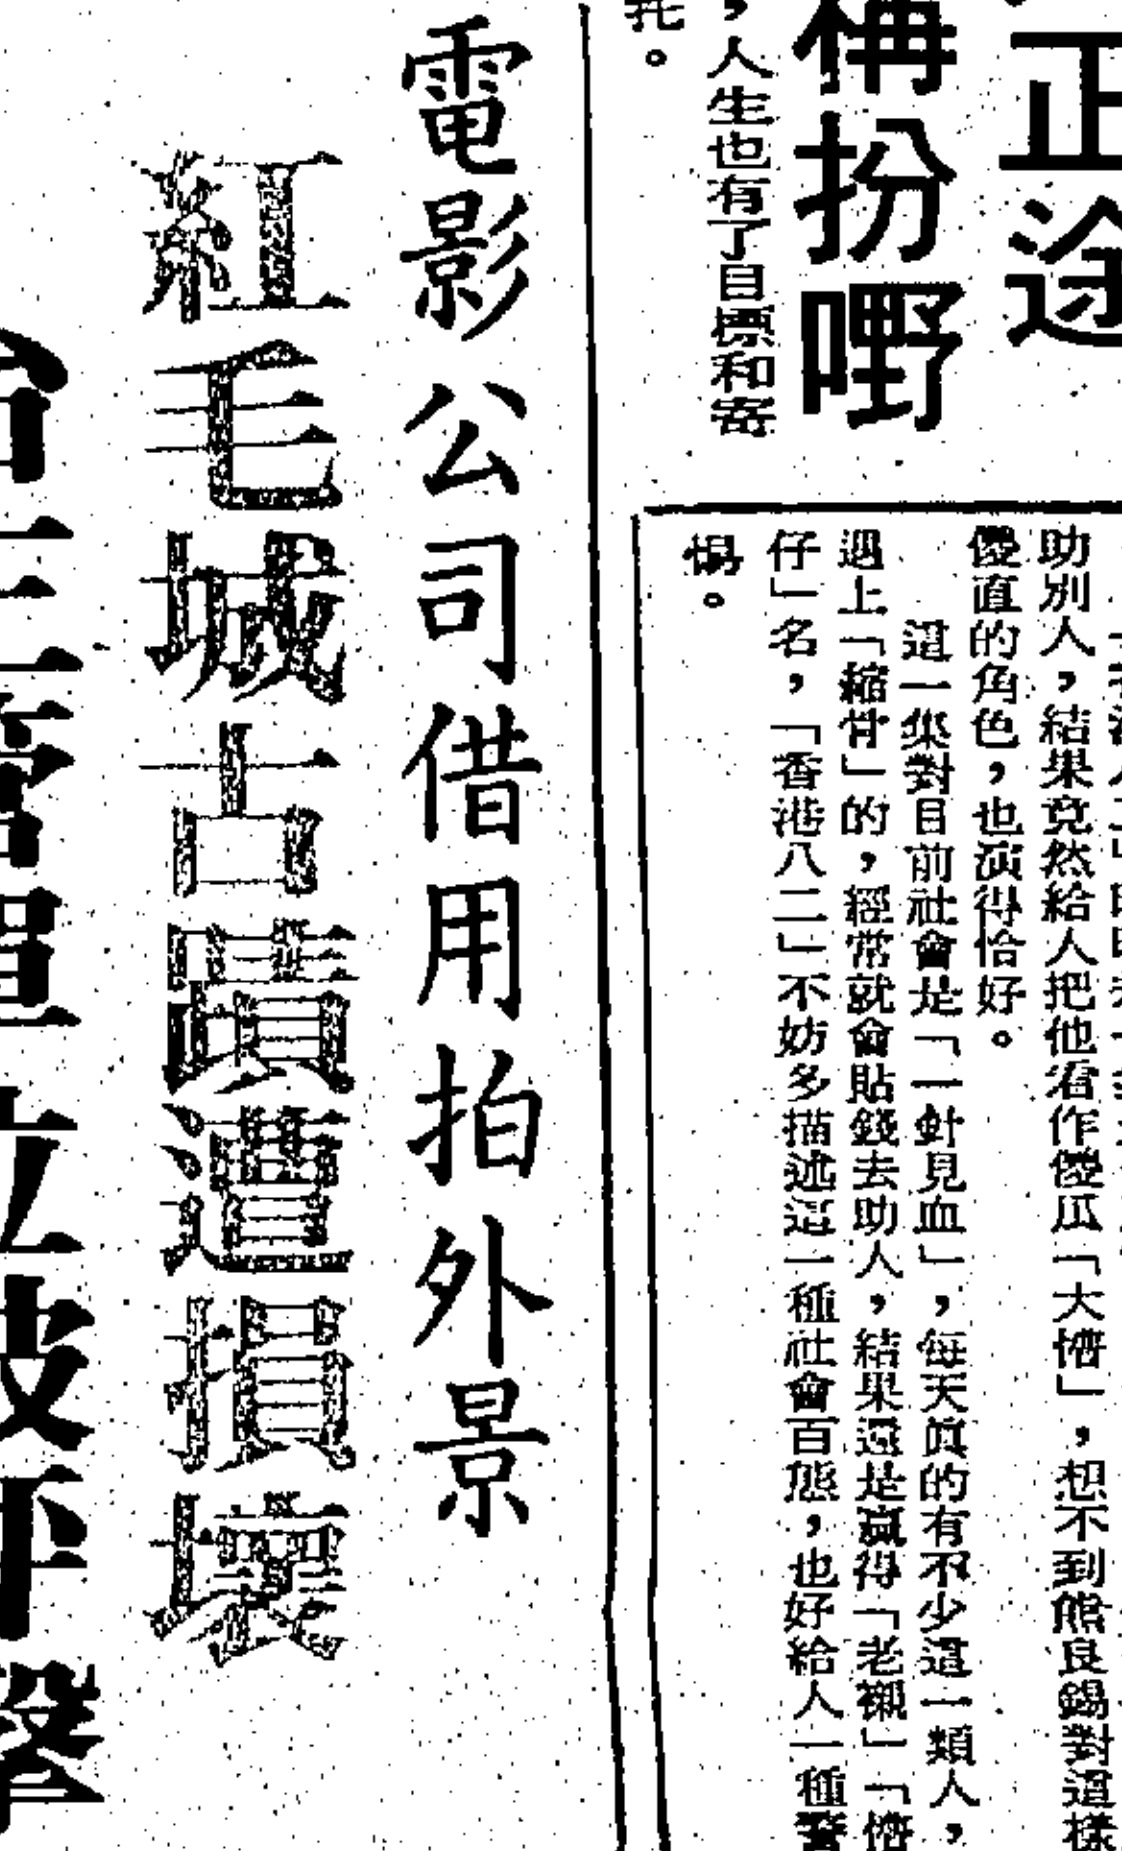 正途
扮嘢
,人生也有了目標和寄
托。
助別人,結果竟然給人把他看作傻瓜「大懵」,想不到熊良錫對這樣
傻直的角色,也演得恰好。
這一集對目前社會是「一針見血」,每天真的有不少這一類人,
遇上「縮骨」的,經常就會貼錢去助人,結果還是贏得「老襯」「懵
仔」名,「香港八二」不妨多描述這一種社會百態,也好給人一種警
惕。
電影公司借用拍外景
紅毛城古蹟遭損壞